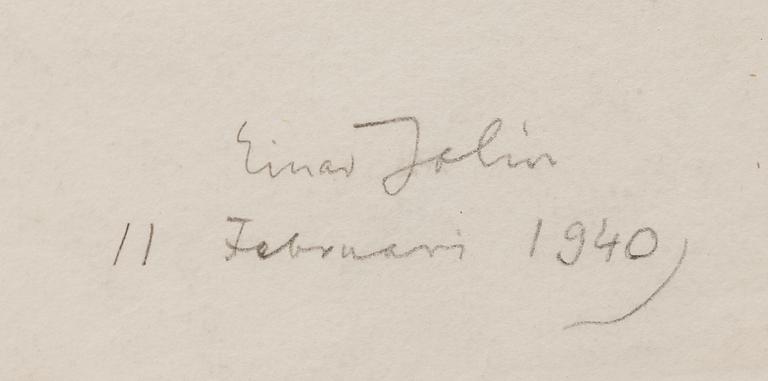 Einar Jolin
11 Februari 1940